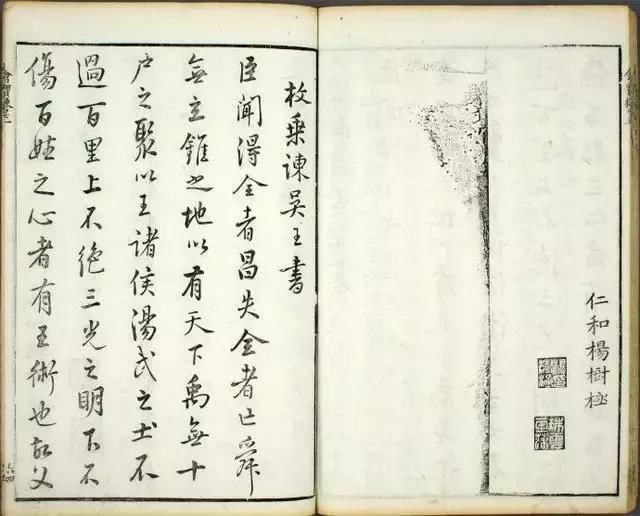 仁和楊樹極
枚乗諫吴王書
臣聞得全者昌失全者亡舜
無立錐之地以有天下禹無十
户之聚以王諸侯湯武之士不
過百里上不絶三光之明下不
傷百姓之心者有王術也故父